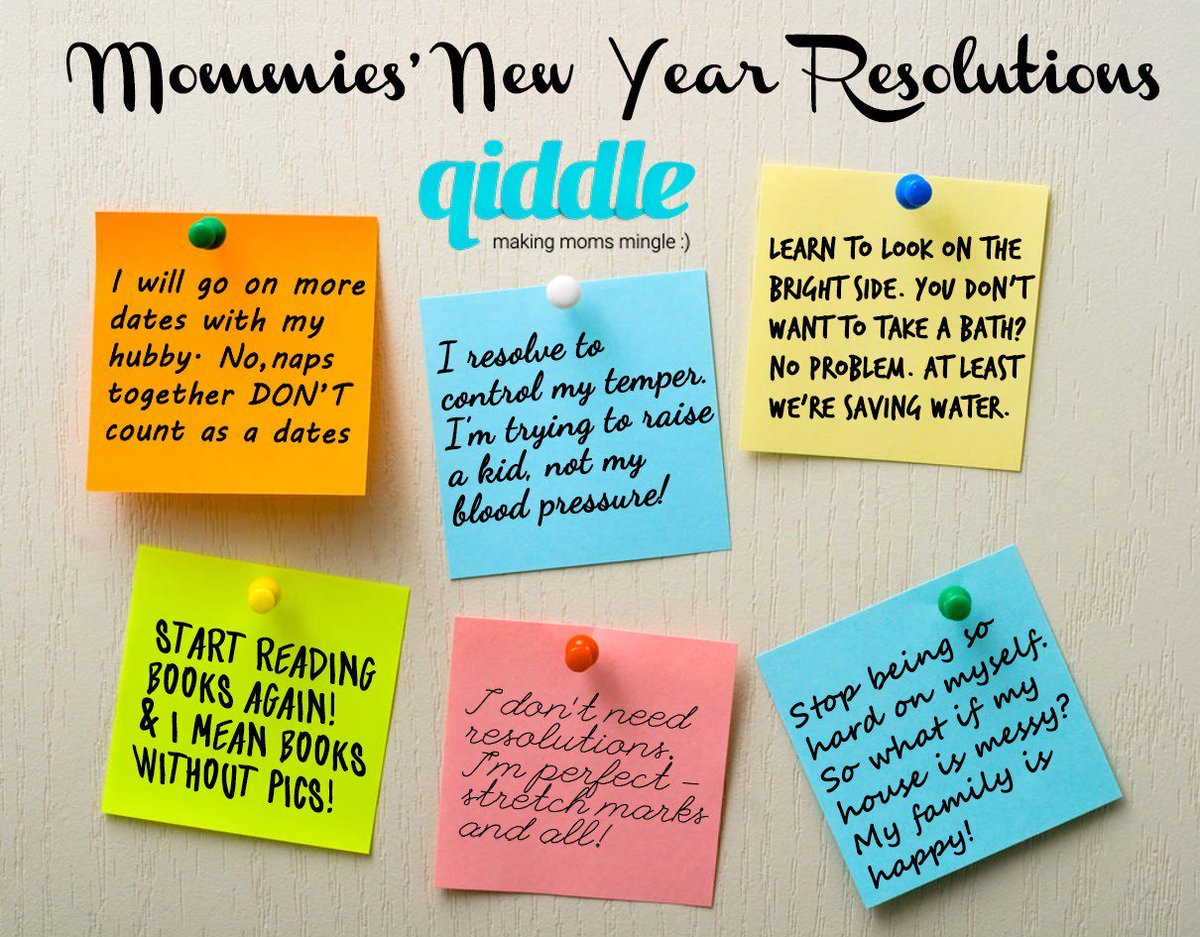 Mommies' New Year Resolutions
qiddle
making moms mingle :)
I will go on more
dates with my
hubby. No, naps
together DON'T
count as a dates
I resolve to
control my temper.
I'm trying to raise
a kid, not my
blood pressure!
LEARN TO LOOK ON THE
BRIGHT SIDE. YOU DON'T
WANT TO TAKE A BATH?
NO PROBLEM. AT LEAST
WE'RE SAVING WATER.
START READING
BOOKS AGAIN!
& I MEAN BOOKS
WITHOUT PICS!
I don't need
resolutions.
I'm perfect -
stretch marks
and all!
Stop being so
hard on myself.
So what if my
house is messy?
My family is
happy!